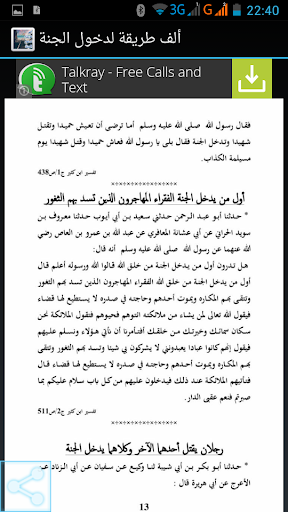 3G
G
22:40
ألف طريقة لدخول الجنة
Talkray - Free Calls and
Text
فقال رسول الله صلى الله عليه وسلم أما ترضى أن تعيش حميدا وتقتل
شهيدا وتدخل الجنة فقال بلى يا رسول الله فعاش حميدا وقتل شهيدا يوم
مسيلمة الكذاب.
تفسير ابن كثير ج1/ص438
********************
أول من يدخل الجنة الفقراء المهاجرون الذين تسد بهم الثغور
* حدثنا أبو عبد الرحمن حدثني سعيد بن أبي أيوب حدثنا معروف بن
سويد الحراني عن أبي عشانة المعافري عن عبد الله بن عمرو بن العاص رضي
الله عنهما عن رسول الله صلى الله عليه وسلم أنه قال:
هل تدرون أول من يدخل الجنة من خلق الله قالوا الله ورسوله أعلم قال
أول من يدخل الجنة من خلق الله الفقراء المهاجرون الذين تسد بهم الثغور
وتتقى بهم المكاره ويموت أحدهم وحاجته في صدره لا يستطيع لها قضاء
فيقول الله تعالى لمن يشاء من ملائكته ائتوهم فحيوهم فتقول الملائكة نحن
سكان سمائك وخيرتك من خلقك أفتأمرنا أن نأتي هؤلاء ونسلم عليهم
فيقول إنهم كانوا عبادا يعبدونني لا يشركون بي شيئا وتسد بهم الثغور وتتقى
بهم المكاره ويموت أحدهم وحاجته في صدره لا يستطيع لها قضاء قال
فتأتيهم الملائكة عند ذلك فيدخلون عليهم من كل باب سلام عليكم بما
صبرتم فنعم عقبى الدار.
تفسير ابن كثير ج2/ص511
********************
رجلان يقتل أحدهما الآخر وكلاهما يدخل الجنة
* حدثنا أبو بكر بن أبي شيبة ثنا وكيع عن سفيان عن أبي الزناد عن
الأعرج عن أبي هريرة قال :
13